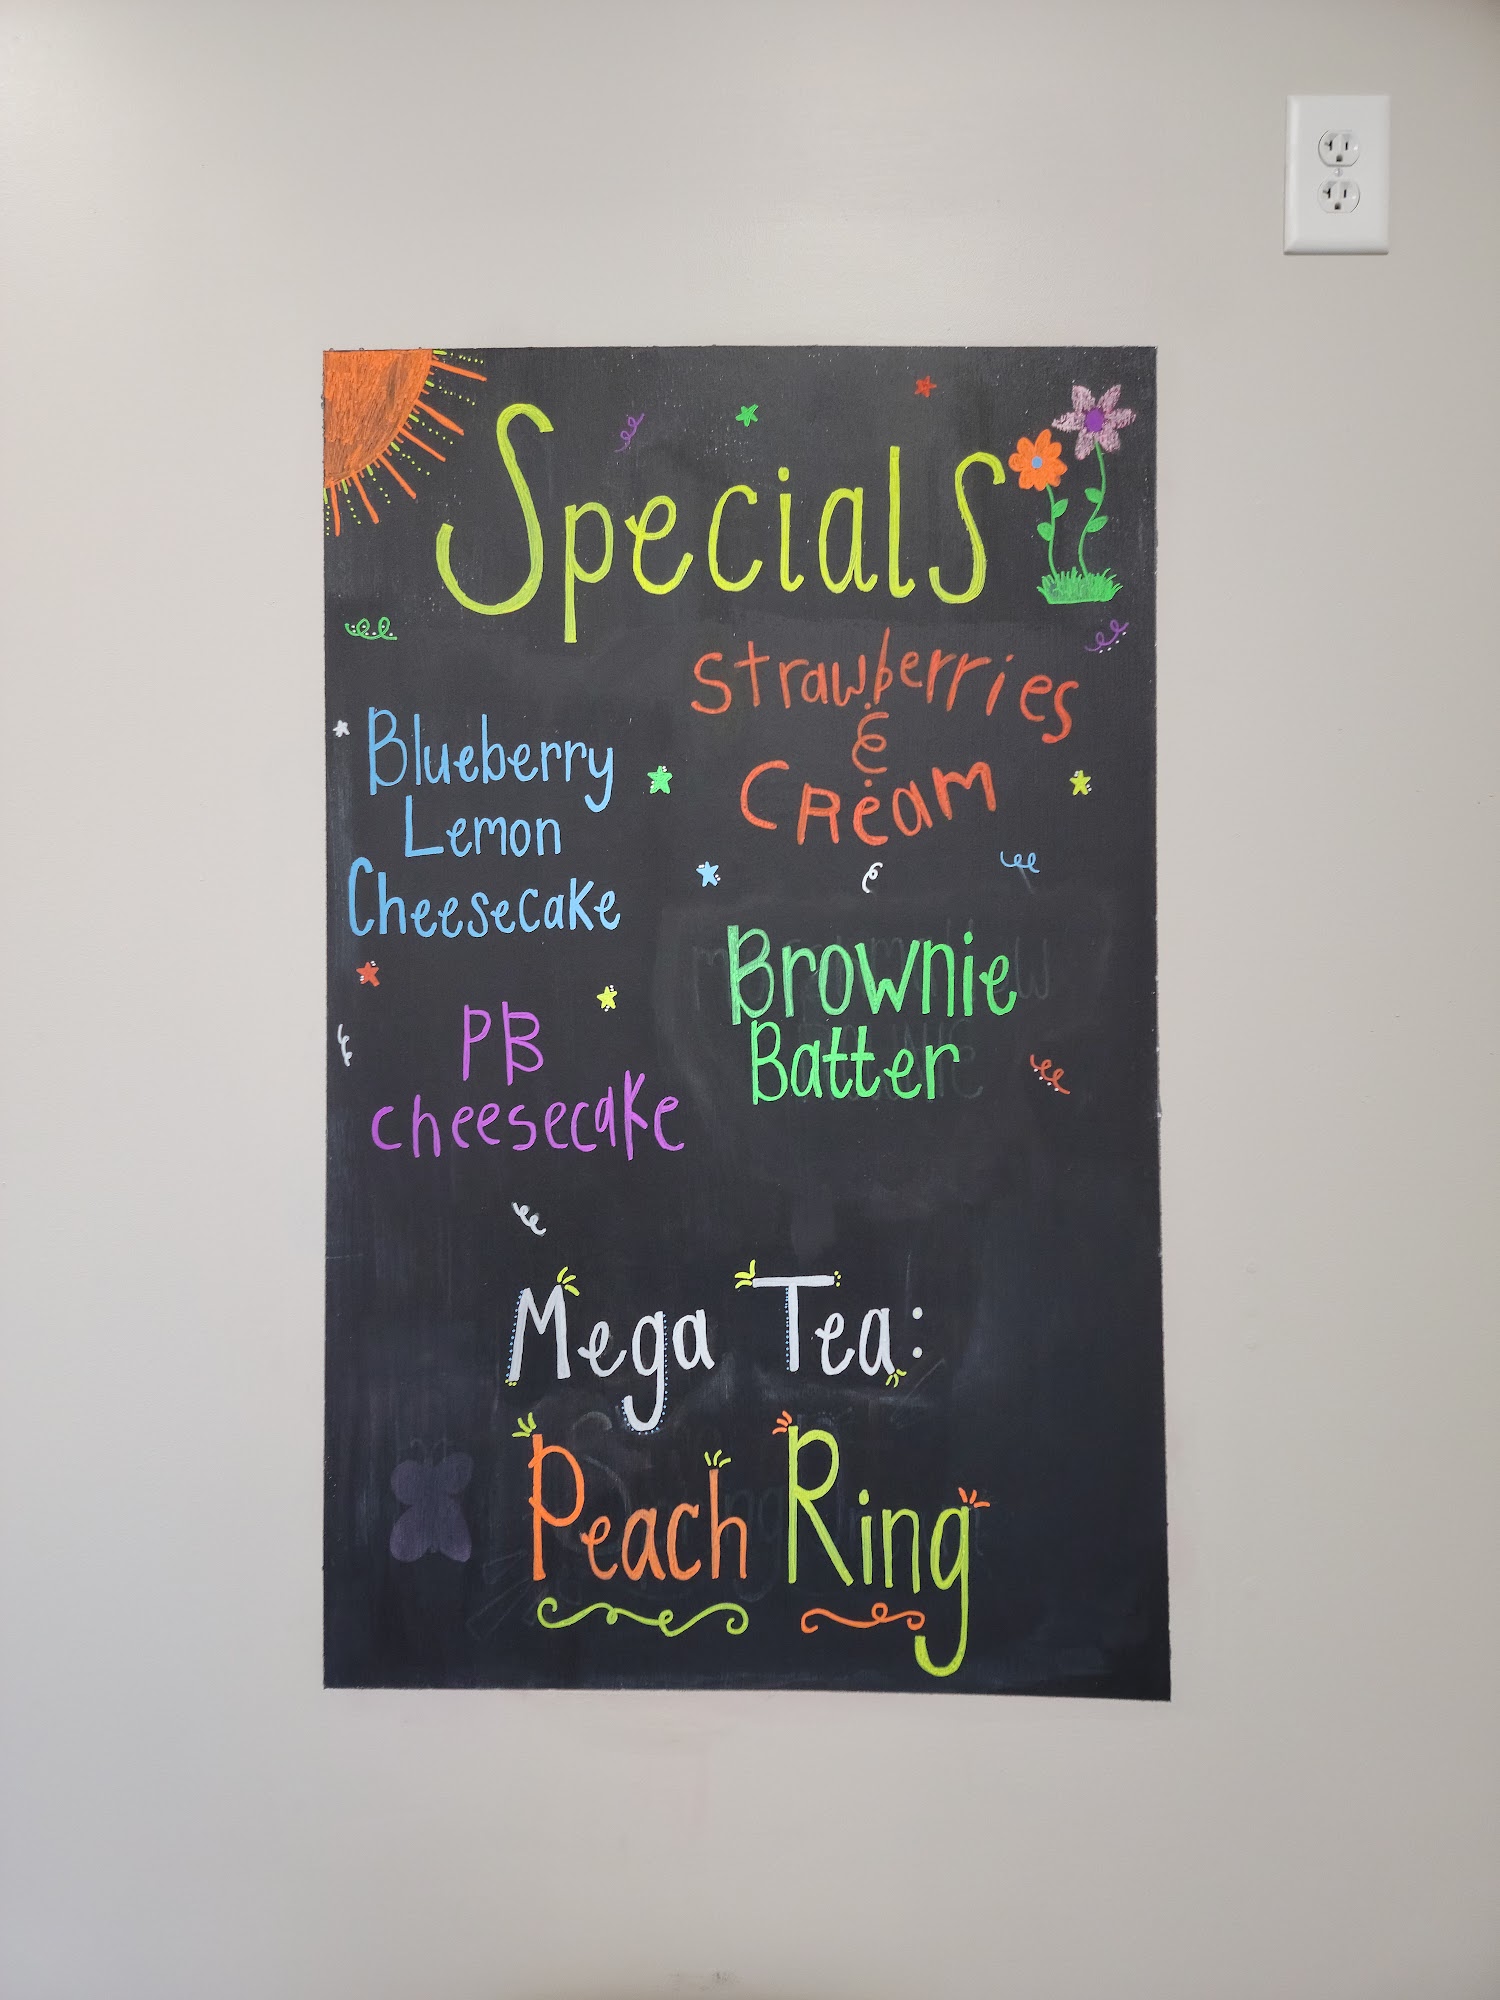 Specials
Blueberry
Lemon
Cheesecake
Strawberries
&
CReaM
PB
cheesecake
Brownie
Batter
Mega Tea:
Peach Ring